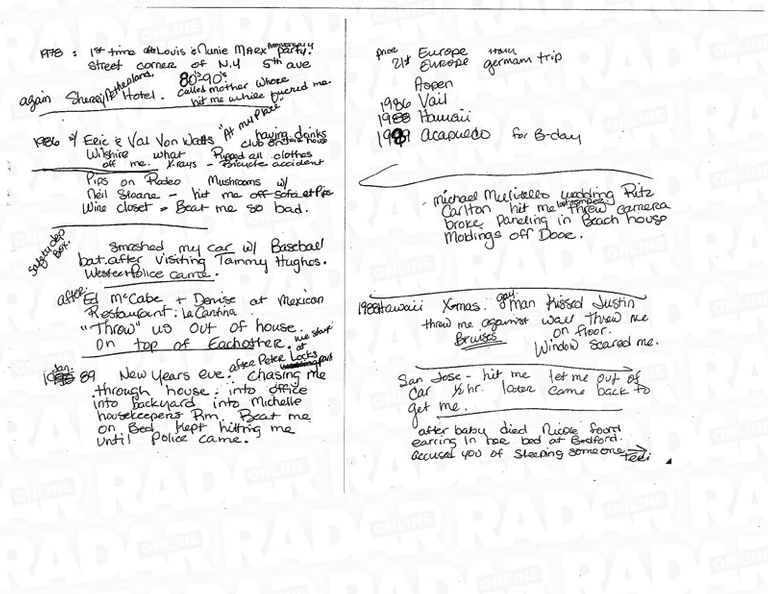 1978 : 1st time at Louis & Nunie Marx Anniversary party.
street corner of N.Y 5th ave
again Sherry Netherland Hotel. 80's 90's called mother whore
hit me while fucked me.
1986 w/ Eric & Val Von Watts "At my Place" having drinks
Wilshire what club
Ripped all clothes
off me. Xrays - Bicycle accident
Pips on Rodeo Mushrooms w/
Neil Sloane - hit me off sofa at Pips
Wine closet - Beat me so bad.
Safety dep
Box.
Smashed my car w/ Baseball
bat after visiting Tammy Hughes.
Westec Police came.
after: Ed McCabe + Denise at Mexican
Restaurant: La Cantina
"Throw" us out of house.
on top of Eachother.
Jan. 1989 New Years eve. after Peter Locks party
we start at
Chasing me
through house: into office
into backyard into Michelle
housekeepers Rm. Beat me
on Bed, kept hitting me
until Police came.
prior Europe
21st Europe german trip
Aspen
1986 Vail
1988 Hawaii
1989 Acapulco for B-day
michael wedding Ritz
Carlton hit me threw camera
broke Paneling in Beach house
Moldings off Door.
1988 Hawaii Xmas. gay man kissed Justin
threw me against wall threw me
on floor.
Bruises
Window scared me.
San Jose - hit me let me out of
car ½ hr. later came back to
get me.
after baby died Nicole found
earring in her bed at Bedford.
accused you of sleeping someone
Teri
RADAR
ONLINE